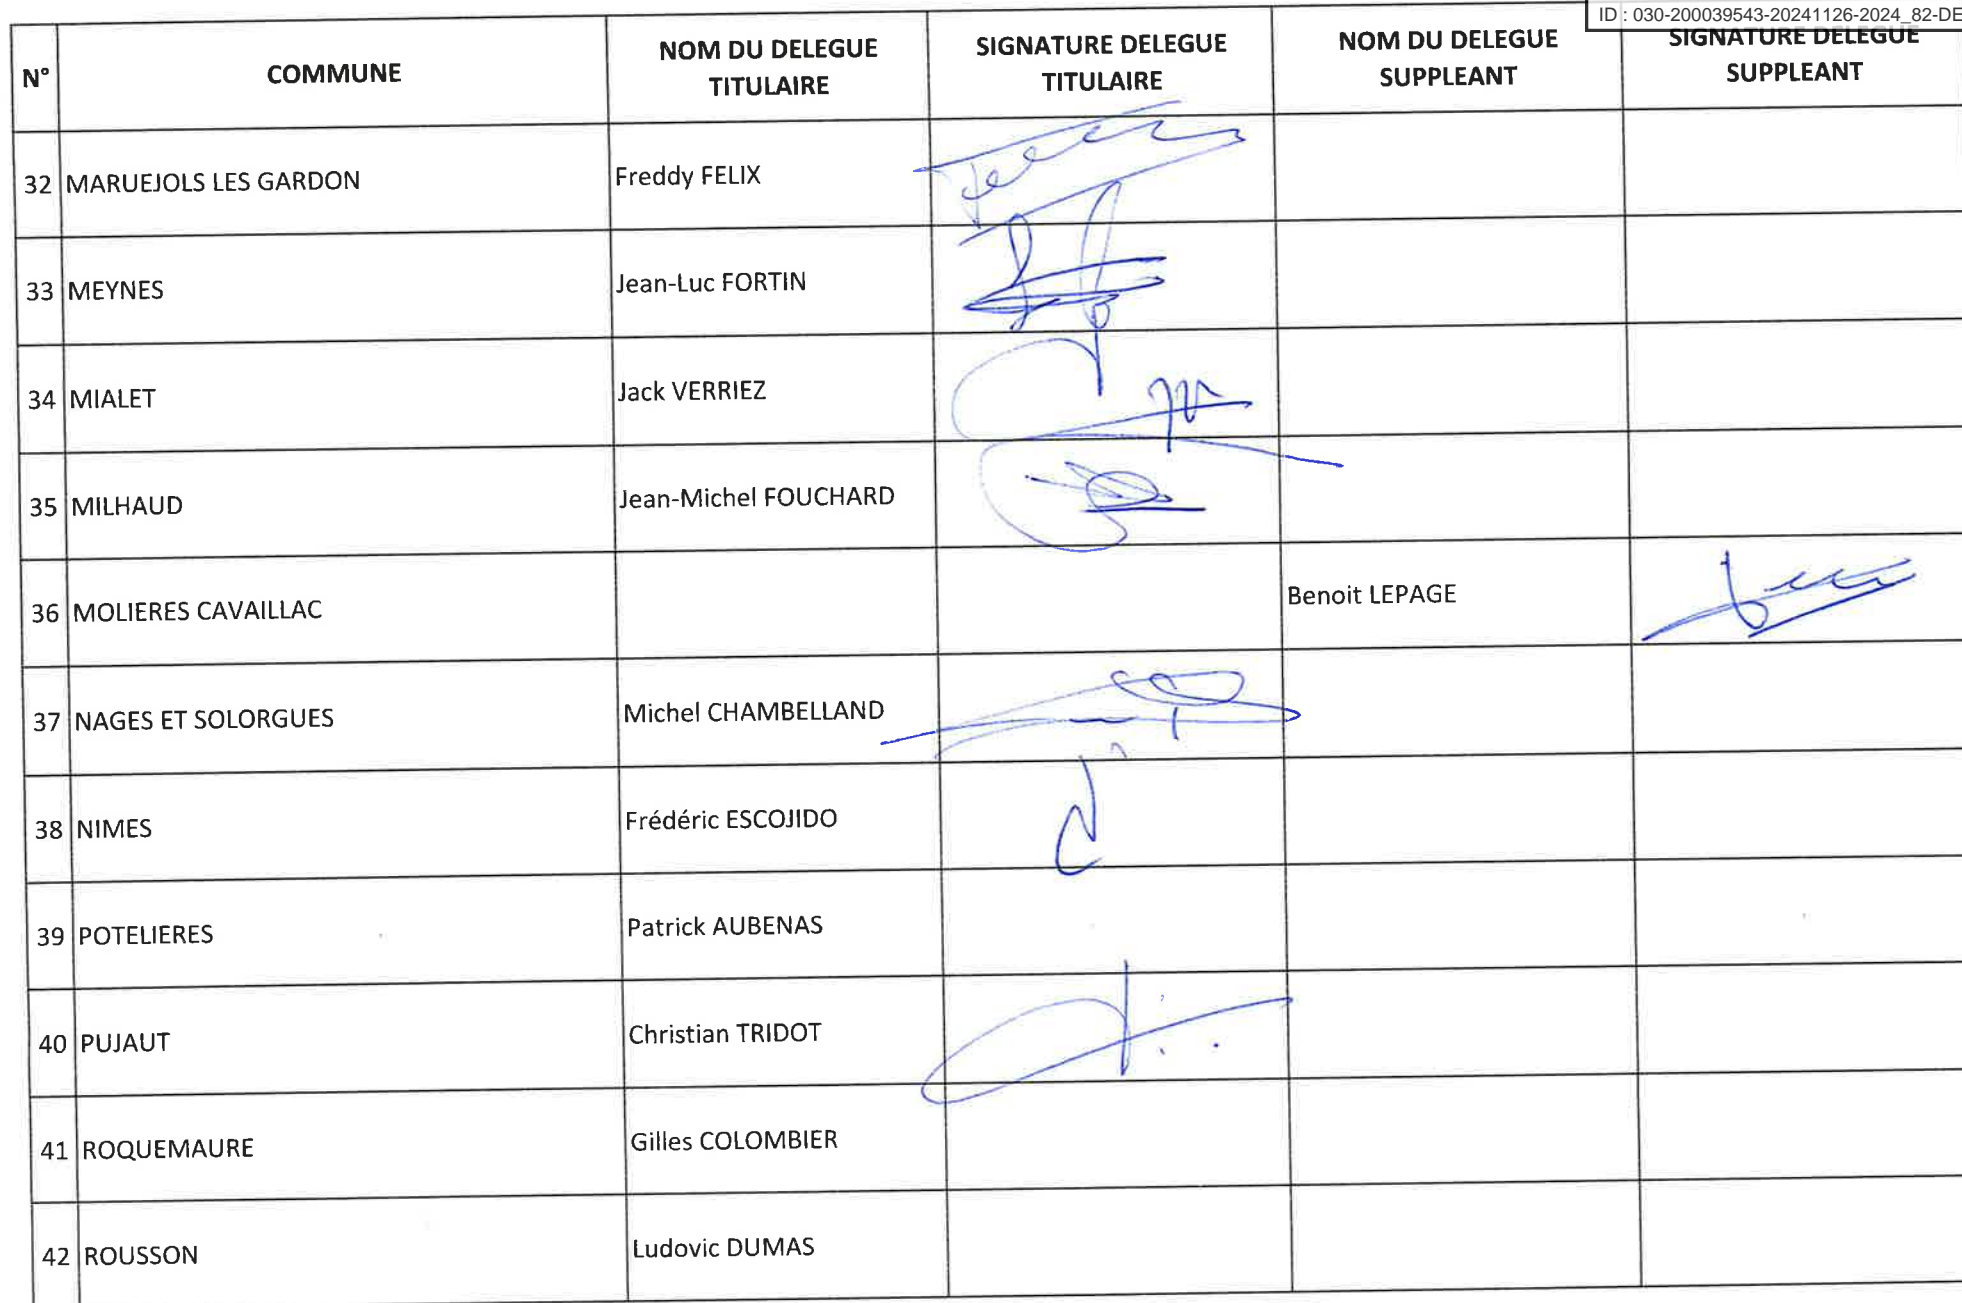 ID : 030-200039543-20241126-2024_82-DE
N° COMMUNE NOM DU DELEGUE TITULAIRE SIGNATURE DELEGUE TITULAIRE NOM DU DELEGUE SUPPLEANT SIGNATURE DELEGUE SUPPLEANT
32 MARUEJOLS LES GARDON Freddy FELIX
33 MEYNES Jean-Luc FORTIN
34 MIALET Jack VERRIEZ
35 MILHAUD Jean-Michel FOUCHARD
36 MOLIERES CAVAILLAC Benoit LEPAGE
37 NAGES ET SOLORGUES Michel CHAMBELLAND
38 NIMES Frédéric ESCOJIDO
39 POTELIERES Patrick AUBENAS
40 PUJAUT Christian TRIDOT
41 ROQUEMAURE Gilles COLOMBIER
42 ROUSSON Ludovic DUMAS